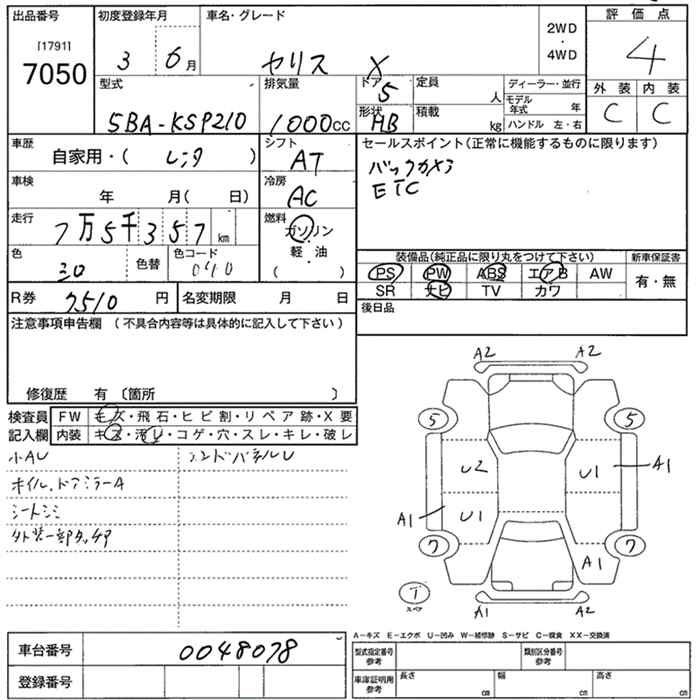 出品番号 初度登録年月 車名・グレード 2WD・4WD 評価点
[1791] 7050 3 6月 ヤリス X 4
型式 排気量 ドア 定員 ディーラー・並行 外装 内装
5BA-KSP210 1000cc 5 人 モデル年式 年 C C
形状 HB 積載 kg ハンドル 左・右
車歴 シフト セールスポイント(正常に機能するものに限ります)
自家用・( レンタ ) AT バックカメラ
車検 冷房 ETC
年 月( 日) AC
走行 燃料
7万5千357km ガソリン
色 色替 色コード 軽油 装備品(純正品に限り丸をつけて下さい) 新車保証書
040 ( ) PS PW ABS エアB AW 有・無
R券 7510円 名変期限 月 日 SR ナビ TV カワ
注意事項申告欄 (不具合内容等は具体的に記入して下さい) 後日品
修復歴 有 〔箇所 〕
検査員 FW キズ・飛石・ヒビ割・リペア跡・X要
記入欄 内装 キズ・汚レ・コゲ・穴・スレ・キレ・破レ
小AU エンドパネルU
ホイル,ドアミラーA
シートシミ
外装一部タッチP
A2 A2
5 5
U2 U1 A1
A1 U1
7 7
A1
T
スペア
A1 A2
A−キズ E−エクボ U−凹み W−補修跡 S−サビ C−腐食 XX−交換済
車台番号 0048078 型式指定番号 参考 類別区分番号 参考
登録番号 車庫証明用 参考 長さ cm 幅 cm 高さ cm